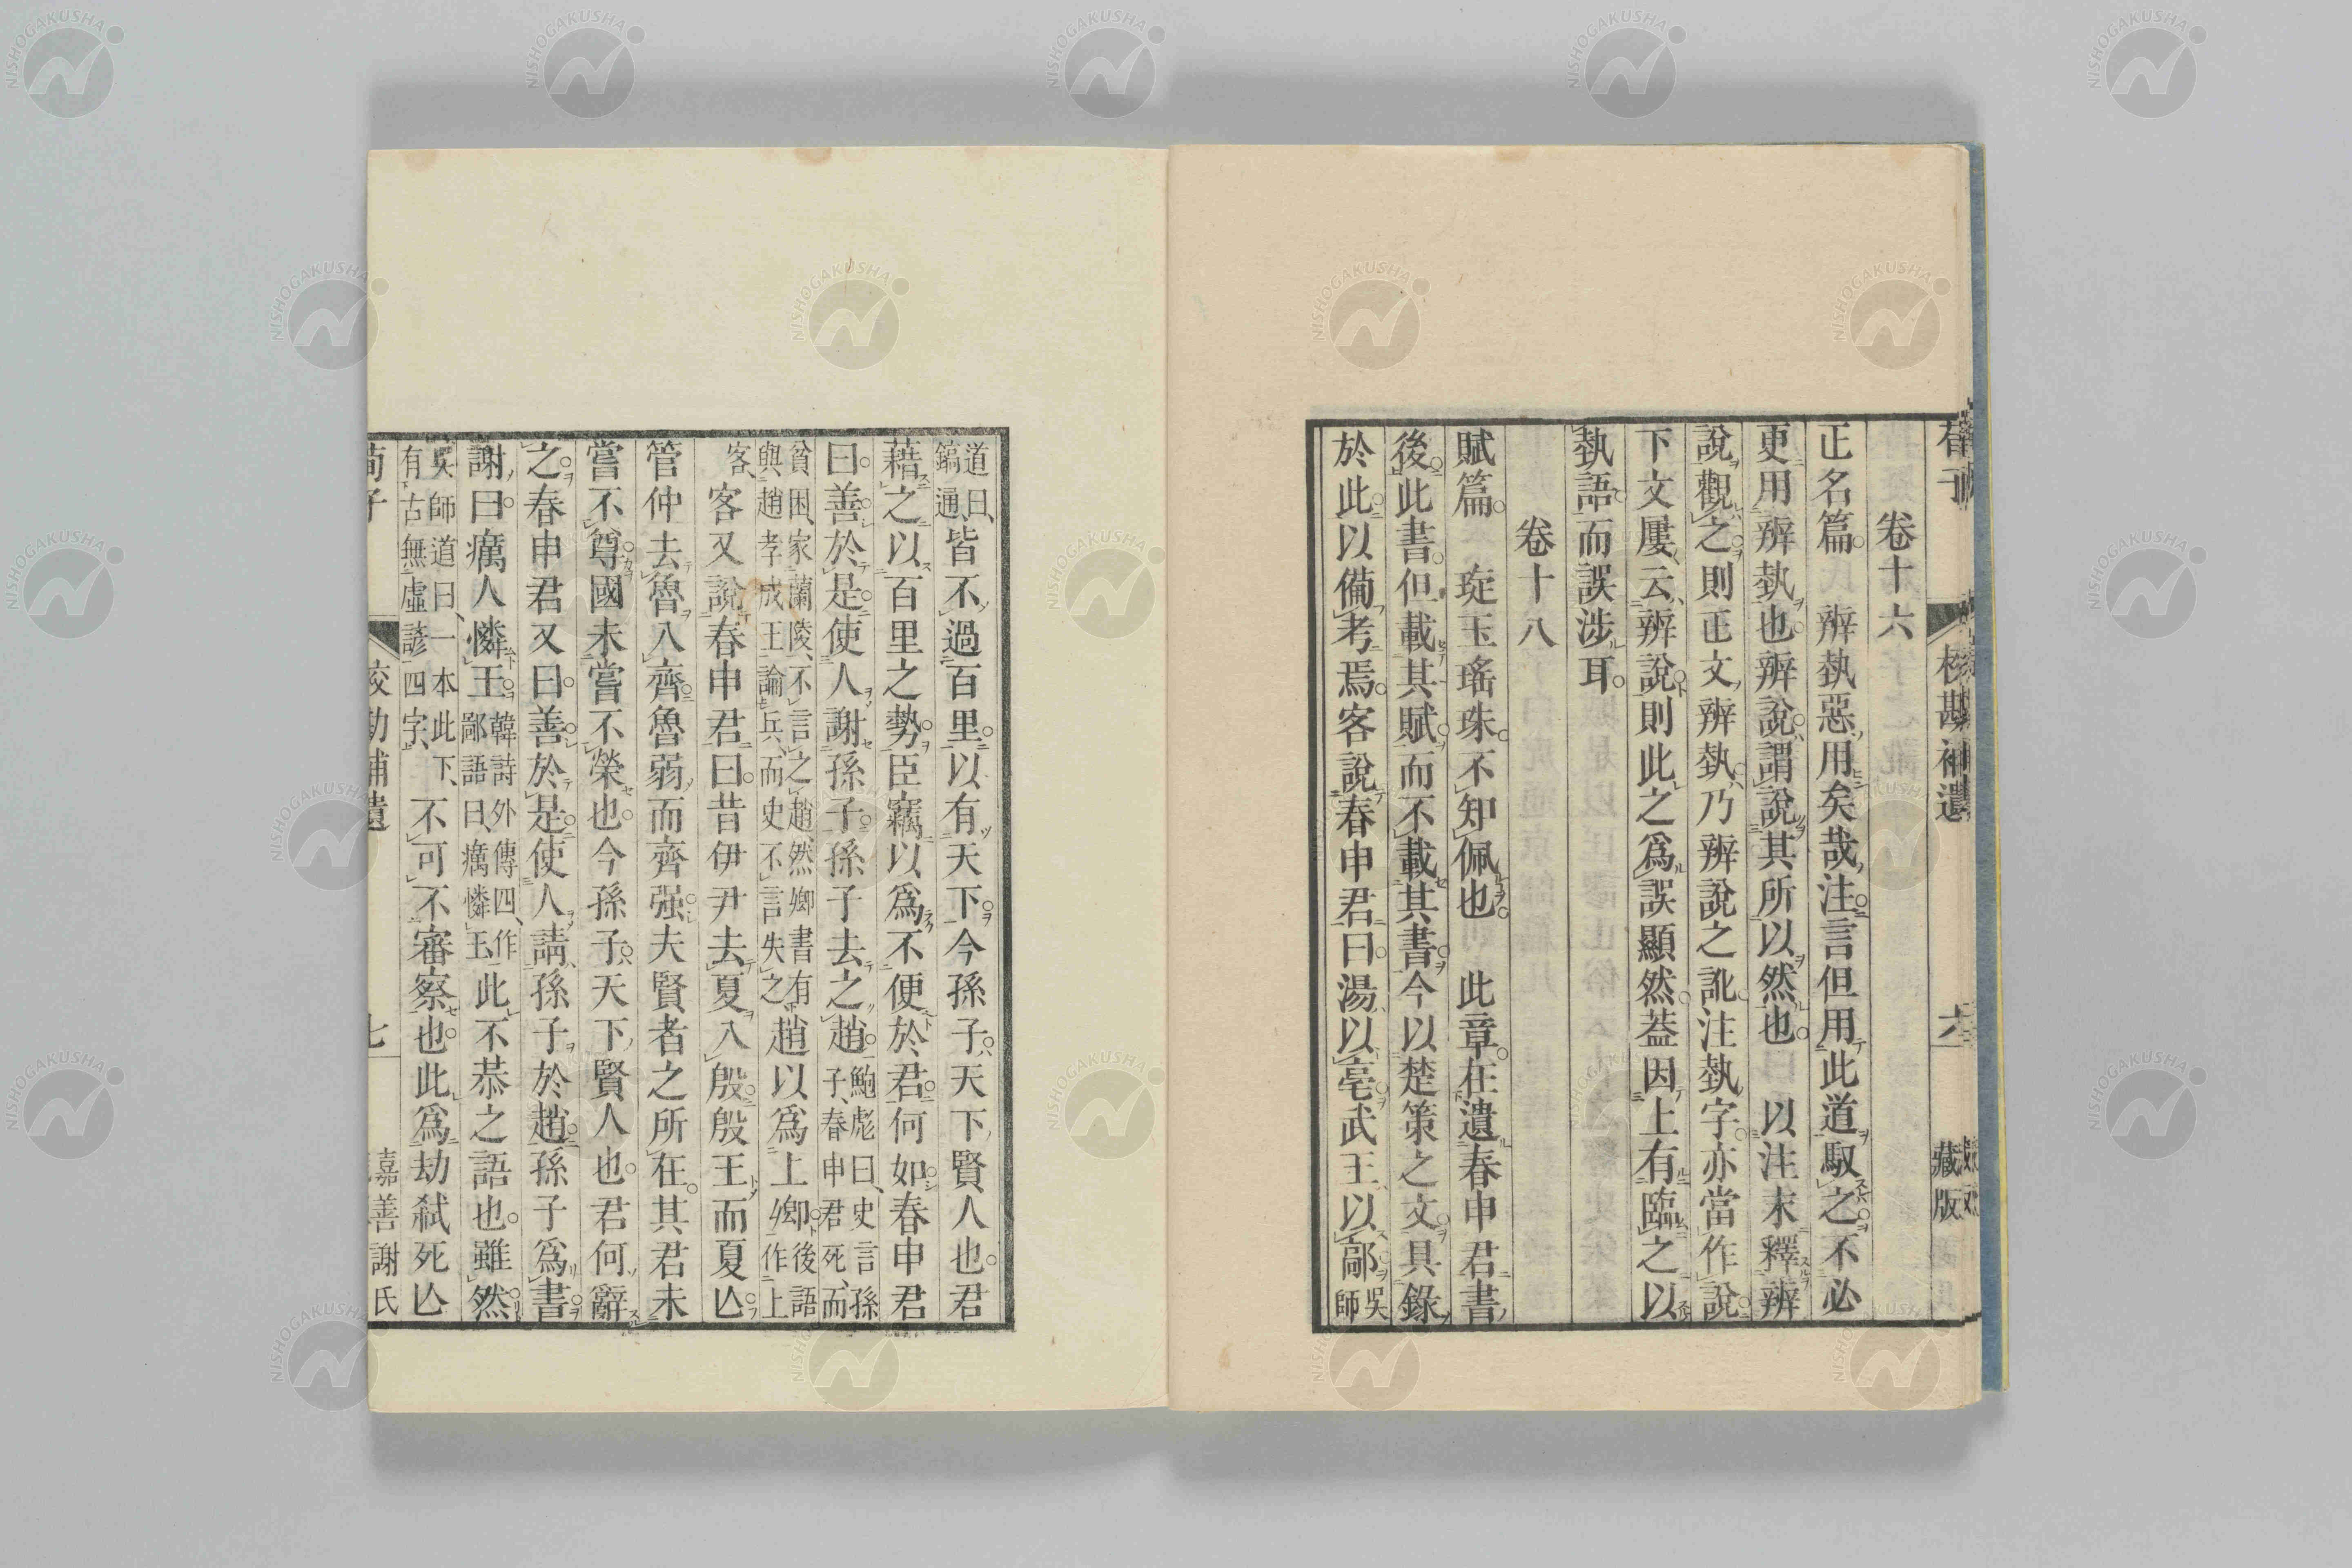 荀子 校勘補遺 六 藏版
卷十六
正名篇 辨埶惡用矣哉注言但用此道馭之不必
更用辨埶也辨說謂說其所以然也 以注末釋辨
說觀之則正文辨埶乃辨說之訛注埶字亦當作說
下文屢云辨說則此之爲誤顯然葢因上有臨之以
埶語而誤涉耳
卷十八
賦篇 琁玉瑤珠不知佩也 此章在遺春申君書
後此書但載其賦而不載其書今以楚策之文具錄
於此以備考焉客說春申君曰湯以亳武王以鄗吳師
道曰鎬通皆不過百里以有天下今孫子天下賢人也君
藉之以百里之勢臣竊以爲不便於君何如春申君
曰善於是使人謝孫子孫子去之趙鮑彪曰史言孫子春申君死而
貧困家蘭陵不言之趙然卿書有與趙孝成王論兵而史不言失之趙以爲上卿後語作上
客客又說春申君曰昔伊尹去夏入殷殷王而夏亾
管仲去魯入齊魯弱而齊强夫賢者之所在其君未
嘗不尊國未嘗不榮也今孫子天下賢人也君何辭
之春申君又曰善於是使人請孫子於趙孫子爲書
謝曰癘人憐王韓詩外傳四作鄙語曰癘憐王此不恭之語也雖然
吳師道曰一本此下有古無虛諺四字不可不審察也此爲劫弑死亾
荀子 校勘補遺 七 嘉善謝氏
NISHOGAKUSHA